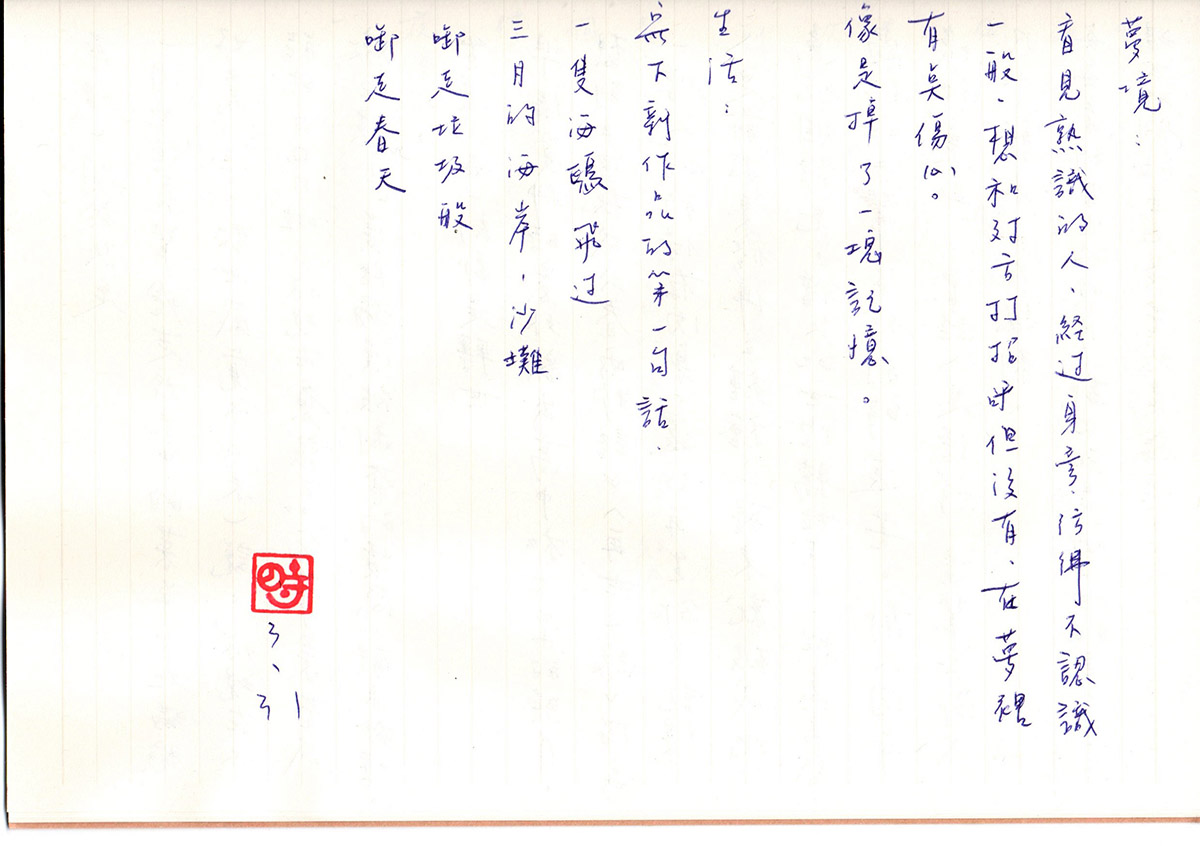 夢境：
看見熟識的人、経过身旁、彷彿不認識
一般、想和对方打招呼但沒有、在夢裡
有点傷心。
像是掉了一塊記憶。
生活：
寫下新作品的第一句話．
一隻海鷗飛过
三月的海岸，沙灘
啣走垃圾般
啣走春天
時
3、31